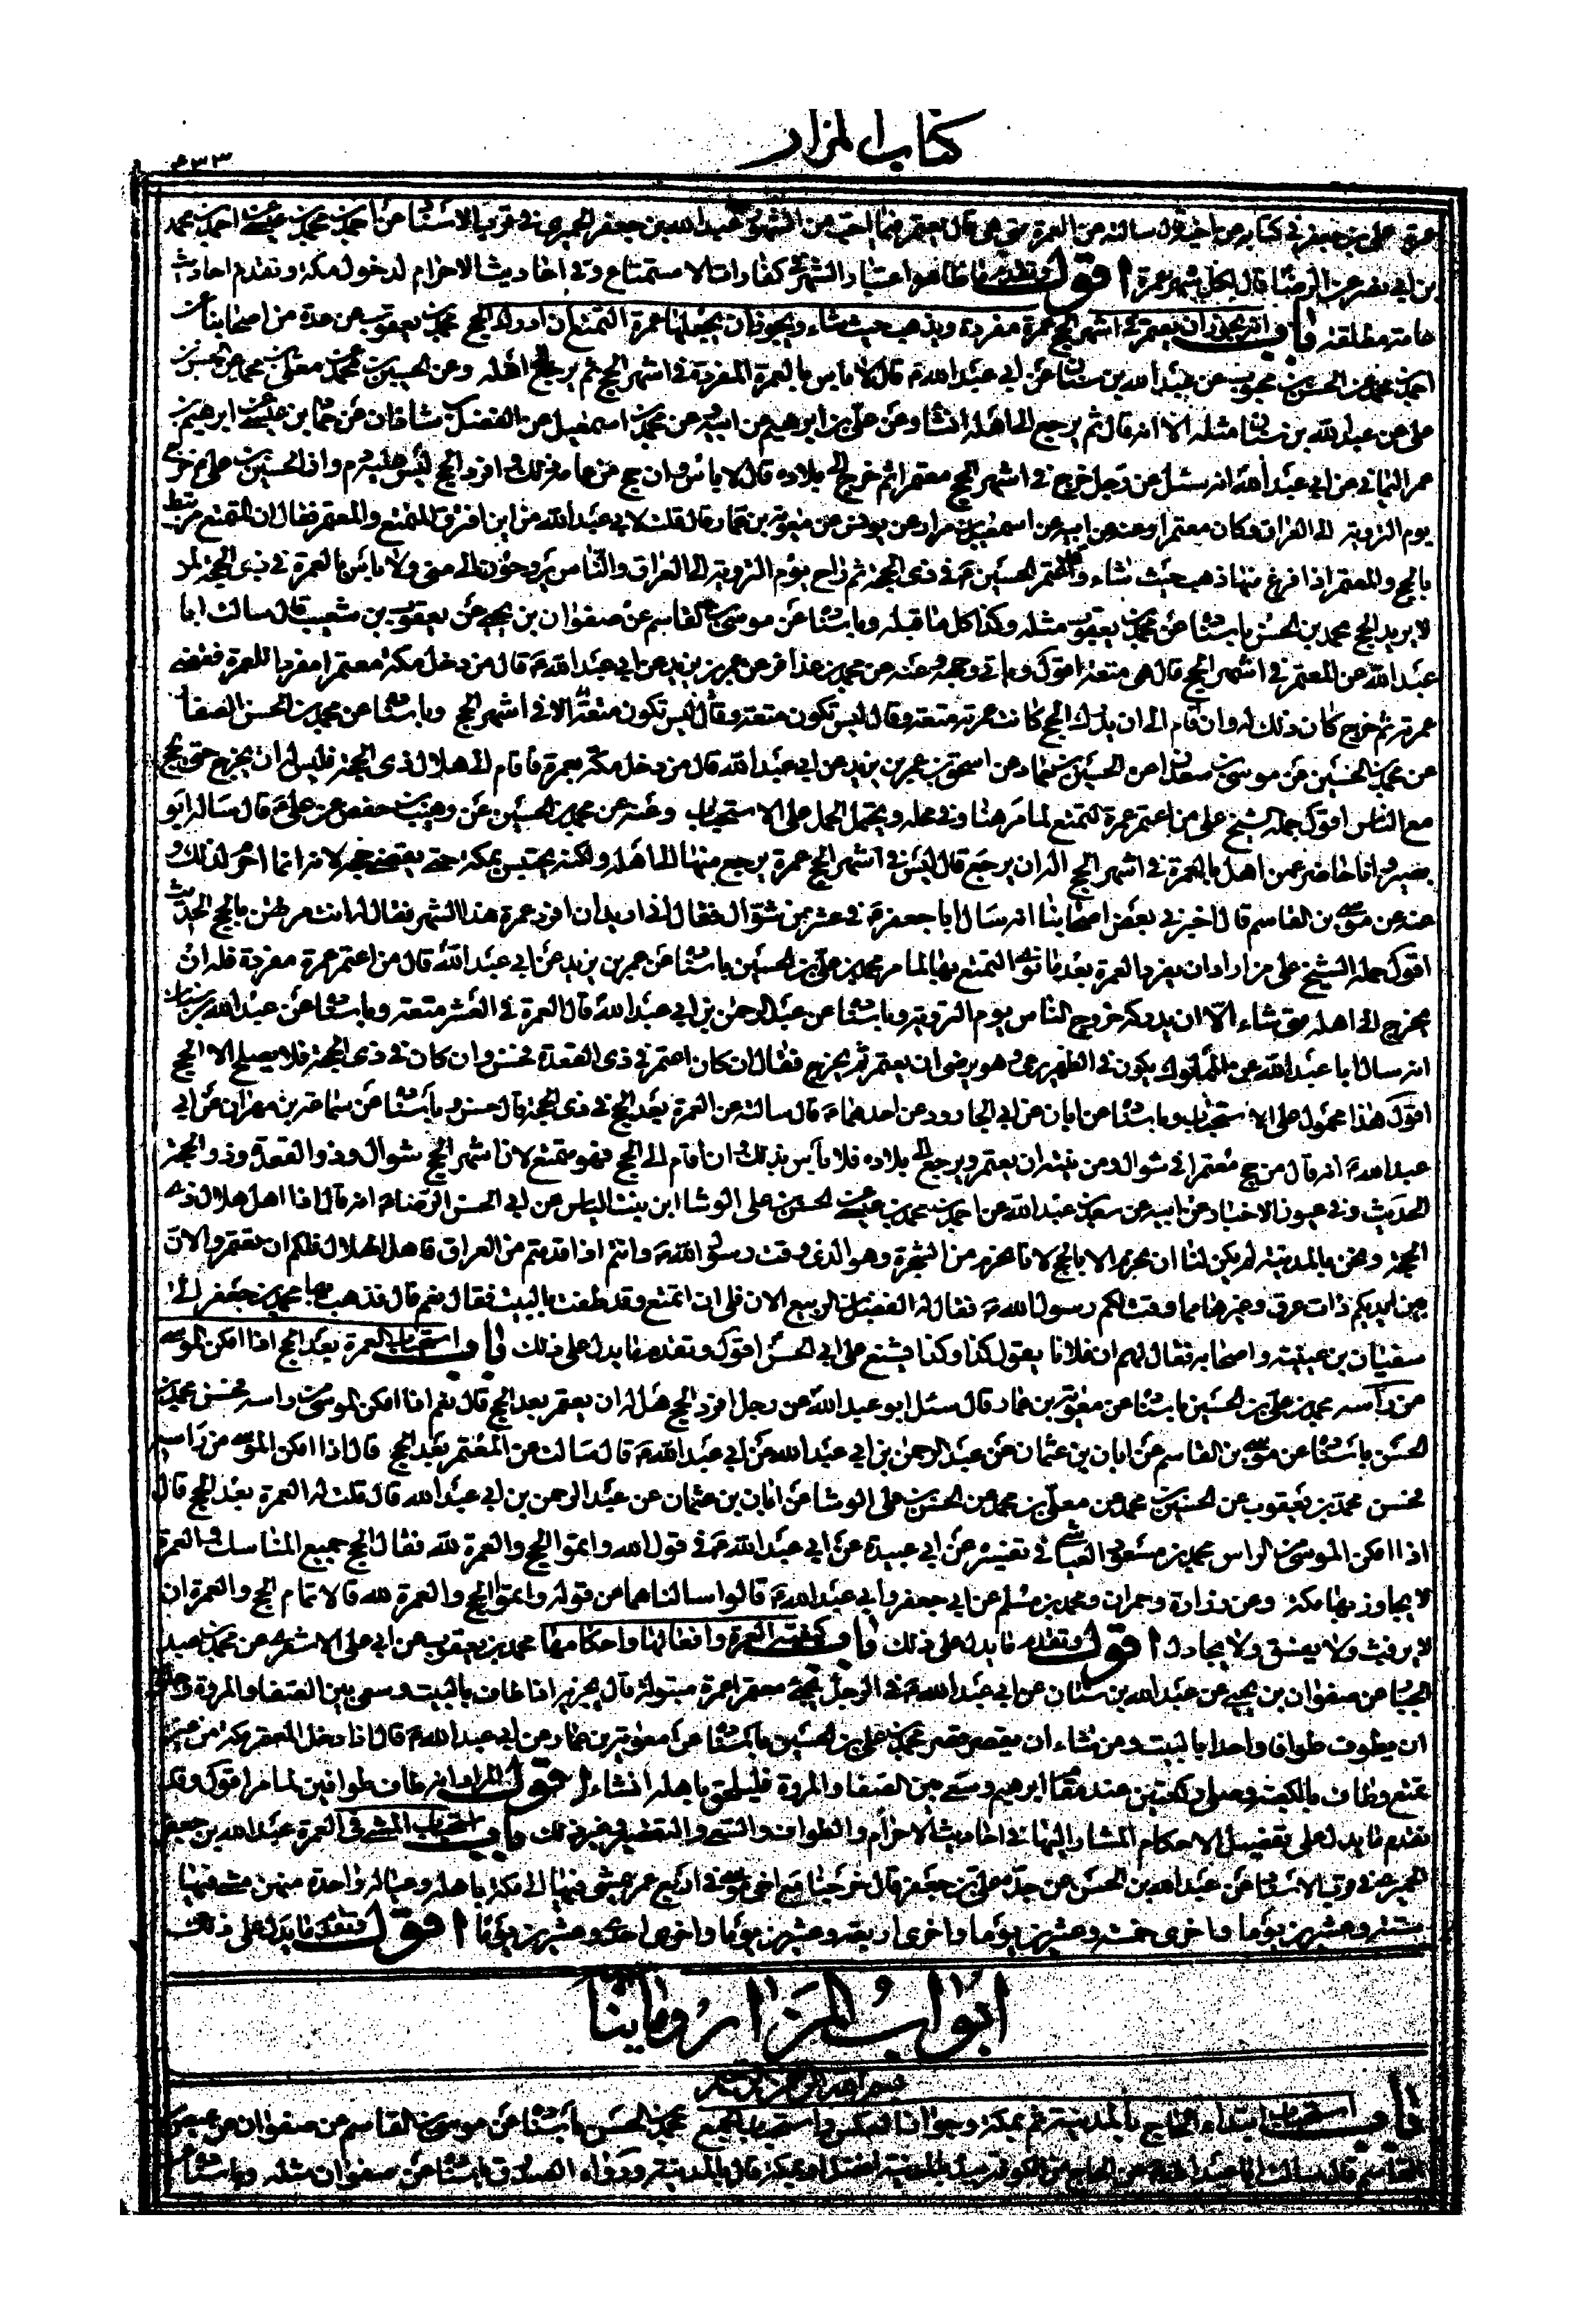 كتاب المزار
٤٣٣
عمرة علي بن جعفر في كتابه عن اخيه قال سالته عن العمرة متى هي قال يعتمر فيما احب من الشهور عبد الله بن جعفر الحميري في قرب الاسناد عن احمد بن محمد بن عيسى عن احمد بن محمد
بن ابي نصر عن الرضا قال لكل شهر عمرة اقول وتقدم ما ظاهره اعتبار الشهر في كفارات الاستمتاع وفي احاديث الاحرام لدخول مكة وتقدم احاديث
عامة مطلقة باب انه يجوز ان يعتمر في اشهر الحج عمرة مفردة ويذهب حيث شاء ويجوز ان يجعلها عمرة التمتع ان ادرك الحج محمد بن يعقوب عن عدة من اصحابنا عن
احمد بن محمد عن الحسن بن محبوب عن عبد الله بن سنان عن ابي عبد الله ع قال لا باس بالعمرة المفردة في اشهر الحج ثم يرجع الى اهله وعن الحسين بن محمد عن معلى بن محمد عن الحسن بن
علي عن عبد الله بن سنان مثله الا انه قال ثم يرجع الى اهله انشاء وعن علي بن ابرهيم عن ابيه وعن محمد بن اسمعيل عن الفضل بن شاذان عن حماد بن عيسى عن ابرهيم بن
عمر اليماني عن ابي عبد الله انه سئل عن رجل خرج في اشهر الحج معتمرا ثم خرج الى بلاده قال لا باس وان حج من عامه ذلك وافرد الحج فليس عليه دم وان الحسين بن علي ع خرج
يوم التروية الى العراق وكان معتمرا وعنه عن ابيه عن اسمعيل بن مرار عن يونس عن معوية بن عمار قال قلت لابي عبد الله من اين افترق المتمتع والمعتمر فقال ان المتمتع مرتبط
بالحج والمعتمر اذا فرغ منها ذهب حيث شاء وقد اعتمر الحسين ع في ذي الحجة ثم راح يوم التروية الى العراق والناس يروحون الى منى ولا باس بالعمرة في ذي الحجة لمن
لا يريد الحج محمد بن الحسن باسناده عن محمد بن يعقوب مثله وكذا كل ما قبله وباسناده عن موسى بن القاسم عن صفوان بن يحيى عن يعقوب بن شعيب قال سالت ابا
عبد الله عن المعتمر في اشهر الحج قال هي متعة اقول وياتي وجهه وعنه عن محمد بن عذافر عن عمر بن يزيد عن ابي عبد الله ع قال من دخل مكة معتمرا مفردا للعمرة فقضى
عمرته ثم خرج كان ذلك له وان اقام الى ان يدرك الحج كانت عمرته متعة وقال ليس تكون متعة الا في اشهر الحج وباسناده عن محمد بن الحسن الصفار
عن محمد بن الحسين عن موسى بن سعدان عن الحسين بن حماد عن اسحق عن عمر بن يزيد عن ابي عبد الله قال من دخل مكة بعمرة فاقام الى هلال ذي الحجة فليس له ان يخرج حتى يحج
مع الناس اقول حمله الشيخ على من اعتمر عمرة التمتع لما مر هنا وفي محله ويحتمل الحمل على الاستحباب وعنه عن محمد بن الحسين عن وهيب بن حفص عن علي قال ساله ابو
بصير وانا حاضر عمن اهل بالعمرة في اشهر الحج اله ان يرجع قال ليس في اشهر الحج عمرة يرجع منها الى اهله ولكنه يحتبس بمكة حتى يقضي حجه لانه انما احرم لذلك و
عنه عن موسى بن القاسم قال اخبرني بعض اصحابنا انه سال ابا جعفر ع في عشر من شوال فقال اني اريد ان افرد عمرة هذا الشهر فقال له انت مرتهن بالحج الحديث
اقول حمله الشيخ على من اراد ان يفرد العمرة بعد ما نوى التمتع بها لما مر محمد بن علي بن الحسين باسناده عن عمر بن يزيد عن ابي عبد الله قال من اعتمر عمرة مفردة فله ان
يخرج الى اهله متى شاء الا ان يدركه خروج الناس يوم التروية وباسناده عن عبد الرحمن بن ابي عبد الله قال العمرة في العشر متعة وباسناده عن عبد الله بن سنان
انه سال ابا عبد الله عن المملوك يكون في الظهر يرعى وهو يرضى ان يعتمر ثم يخرج فقال ان كان اعتمر في ذي القعدة فحسن وان كان في ذي الحجة فلا يصلح الا الحج
اقول هذا محمول على الاستحباب وباسناده عن ابان عن ابي الجارود عن احدهما ع قال سالته عن العمرة بعد الحج في ذي الحجة قال حسن وباسناده عن سماعة بن مهران عن ابي
عبد الله ع انه قال من حج معتمرا في شوال ومن نيته ان يعتمر ويرجع الى بلاده فلا باس بذلك وان اقام الى الحج فهو متمتع لان اشهر الحج شوال وذو القعدة وذو الحجة
الحديث وفي عيون الاخبار عن ابيه عن سعد بن عبد الله عن احمد بن محمد بن عيسى عن الحسن بن علي الوشا ابن بنت الياس عن ابي الحسن الرضا ع انه قال اذا اهل هلال ذي
الحجة ونحن بالمدينة لم يكن لنا ان نحرم الا بالحج لانا نحرم من الشجرة وهو الذي وقت رسول الله ص وانتم اذا قدمتم من العراق فاهل الهلال فلكم ان تعتمروا لان
بين ايديكم ذات عرق وغيرها مما وقت لكم رسول الله ص فقال له الفضل بن الربيع الان فلي ان اتمتع وقد طفت بالبيت فقال نعم قال فذهب بها محمد بن جعفر الى
سفيان بن عيينة واصحابه فقال لهم ان فلانا يقول كذا وكذا فيشنع على ابي الحسن اقول وتقدم ما يدل على ذلك باب استحباب العمرة بعد الحج اذا امكن الموسى
من راسه محمد بن علي بن الحسين باسناده عن معوية بن عمار قال سئل ابو عبد الله عن رجل افرد الحج هل له ان يعتمر بعد الحج قال نعم اذا امكن الموسى من راسه فحسن محمد بن
الحسن باسناده عن موسى بن القاسم عن ابان بن عثمان عن عبد الرحمن بن ابي عبد الله عن ابي عبد الله ع قال سالت عن المعتمر بعد الحج قال اذا امكن الموسى من راسه
فحسن محمد بن يعقوب عن الحسين بن محمد عن معلى بن محمد عن الحسن بن علي الوشا عن ابان بن عثمان عن عبد الرحمن بن ابي عبد الله قال قلت له العمرة بعد الحج قال
اذا امكن الموسى من الراس محمد بن مسعود العياشي في تفسيره عن ابي عبيدة عن ابي عبد الله ع في قول الله واتموا الحج والعمرة لله فقال الحج جميع المناسك والعمرة
لا يجاوز بها مكة وعن زرارة وحمران ومحمد بن مسلم عن ابي جعفر وابي عبد الله ع قالوا سالناهما عن قوله واتموا الحج والعمرة لله قالا تمام الحج والعمرة ان
لا يرفث ولا يفسق ولا يجادل اقول وتقدم ما يدل على ذلك باب كيفية العمرة وافعالها واحكامها محمد بن يعقوب عن ابي علي الاشعري عن محمد بن عبد
الجبار عن صفوان بن يحيى عن عبد الله بن سنان عن ابي عبد الله ع في الرجل يجيء معتمرا عمرة مبتولة قال يجزيه اذا طاف بالبيت وسعى بين الصفا والمروة وحلق
ان يطوف طوافا واحدا بالبيت ومن شاء ان يقصر قصر محمد بن علي بن الحسين باسناده عن معوية بن عمار عن ابي عبد الله ع قال اذا دخل المعتمر مكة من غير
تمتع وطاف بالكعبة وصلى ركعتين عند مقام ابرهيم وسعى بين الصفا والمروة فليلحق باهله انشاء اقول المراد انه طاف طوافين لما مر اقول وقد
تقدم ما يدل على تفصيل الاحكام المشار اليها في احاديث الاحرام والطواف والسعي والتقصير وغير ذلك باب استحباب المشي في العمرة عبد الله بن جعفر
الحميري في قرب الاسناد عن عبد الله بن الحسن عن جده علي بن جعفر قال خرجنا مع اخي موسى في اربع عمر يمشي فيها الى مكة باهله وعياله واحدة منهن مشى فيها
ستة وعشرين يوما واخرى خمسة وعشرين يوما واخرى اربعة وعشرين يوما واخرى احد وعشرين يوما اقول وتقدم ما يدل على ذلك
ابواب المزار وما يناسبه
بسم الله الرحمن الرحيم
باب استحباب ابتداء الحاج بالمدينة ثم بمكة وجواز العكس واستحباب الجمع محمد بن الحسن باسناده عن موسى بن القاسم عن صفوان عن عيص بن
القاسم قال سالت ابا عبد الله عن الحاج من الكوفة يبدا بالمدينة افضل او بمكة قال بالمدينة ورواه الصدوق باسناده عن صفوان مثله وباسناده